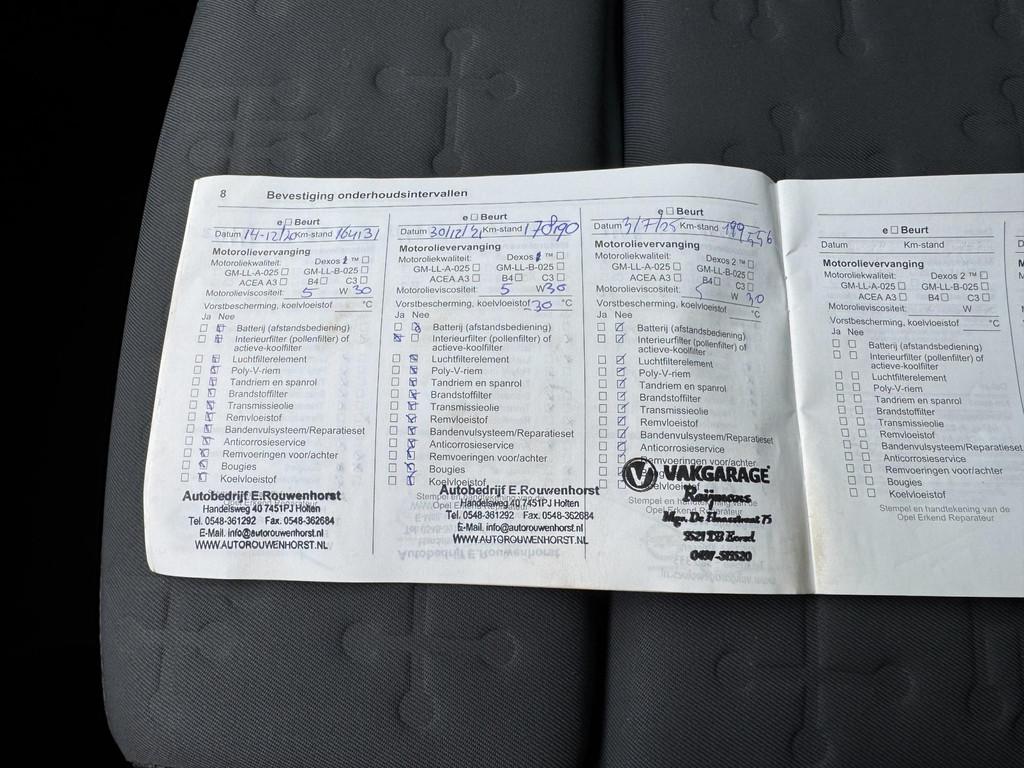 8 Bevestiging onderhoudsintervallen
e □ Beurt
Datum 14-12/20 Km-stand 164131
Motorolievervanging
Motoroliekwaliteit: Dexos 2 ™ □
GM-LL-A-025 □ GM-LL-B-025 □
ACEA A3 □ B4 □ C3 □
Motorolieviscositeit: 5 W 30
Vorstbescherming, koelvloeistof °C
Ja Nee
Batterij (afstandsbediening)
Interieurfilter (pollenfilter) of
actieve-koolfilter
Luchtfilterelement
Poly-V-riem
Tandriem en spanrol
Brandstoffilter
Transmissieolie
Remvloeistof
Bandenvulsysteem/Reparatieset
Anticorrosieservice
Remvoeringen voor/achter
Bougies
Koelvloeistof
Autobedrijf E.Rouwenhorst
Handelsweg 40 7451PJ Holten
Tel. 0548-361292 Fax. 0548-362684
E-Mail. info@autorouwenhorst.nl
WWW.AUTOROUWENHORST.NL
e □ Beurt
Datum 30/12/21 Km-stand 178190
Motorolievervanging
Motoroliekwaliteit: Dexos 2 ™ □
GM-LL-A-025 □ GM-LL-B-025 □
ACEA A3 □ B4 □ C3 □
Motorolieviscositeit: 5 W 30
Vorstbescherming, koelvloeistof -30 °C
Ja Nee
Batterij (afstandsbediening)
Interieurfilter (pollenfilter) of
actieve-koolfilter
Luchtfilterelement
Poly-V-riem
Tandriem en spanrol
Brandstoffilter
Transmissieolie
Remvloeistof
Bandenvulsysteem/Reparatieset
Anticorrosieservice
Remvoeringen voor/achter
Bougies
Koelvloeistof
Stempel en handtekening van de
Autobedrijf E.Rouwenhorst
Handelsweg 40 7451PJ Holten
Tel. 0548-361292 Fax. 0548-362684
E-Mail. info@autorouwenhorst.nl
WWW.AUTOROUWENHORST.NL
e □ Beurt
Datum 3/7/25 Km-stand 199556
Motorolievervanging
Motoroliekwaliteit: Dexos 2 ™ □
GM-LL-A-025 □ GM-LL-B-025 □
ACEA A3 □ B4 □ C3 □
Motorolieviscositeit: 5 W 30
Vorstbescherming, koelvloeistof °C
Ja Nee
Batterij (afstandsbediening)
Interieurfilter (pollenfilter) of
actieve-koolfilter
Luchtfilterelement
Poly-V-riem
Tandriem en spanrol
Brandstoffilter
Transmissieolie
Remvloeistof
Bandenvulsysteem/Reparatieset
Anticorrosieservice
Remvoeringen voor/achter
Koelvloeistof
VAKGARAGE
Stempel en handtekening van de
Opel Erkend Reparateur
Raijmans
75
e □ Beurt
Datum Km-stand
Motorolievervanging
Motoroliekwaliteit: Dexos 2 ™ □
GM-LL-A-025 □ GM-LL-B-025 □
ACEA A3 □ B4 □ C3 □
Motorolieviscositeit: W
Vorstbescherming, koelvloeistof °C
Ja Nee
Batterij (afstandsbediening)
Interieurfilter (pollenfilter) of
actieve-koolfilter
Luchtfilterelement
Poly-V-riem
Tandriem en spanrol
Brandstoffilter
Transmissieolie
Remvloeistof
Bandenvulsysteem/Reparatieset
Anticorrosieservice
Remvoeringen voor/achter
Bougies
Koelvloeistof
Stempel en handtekening van de
Opel Erkend Reparateur